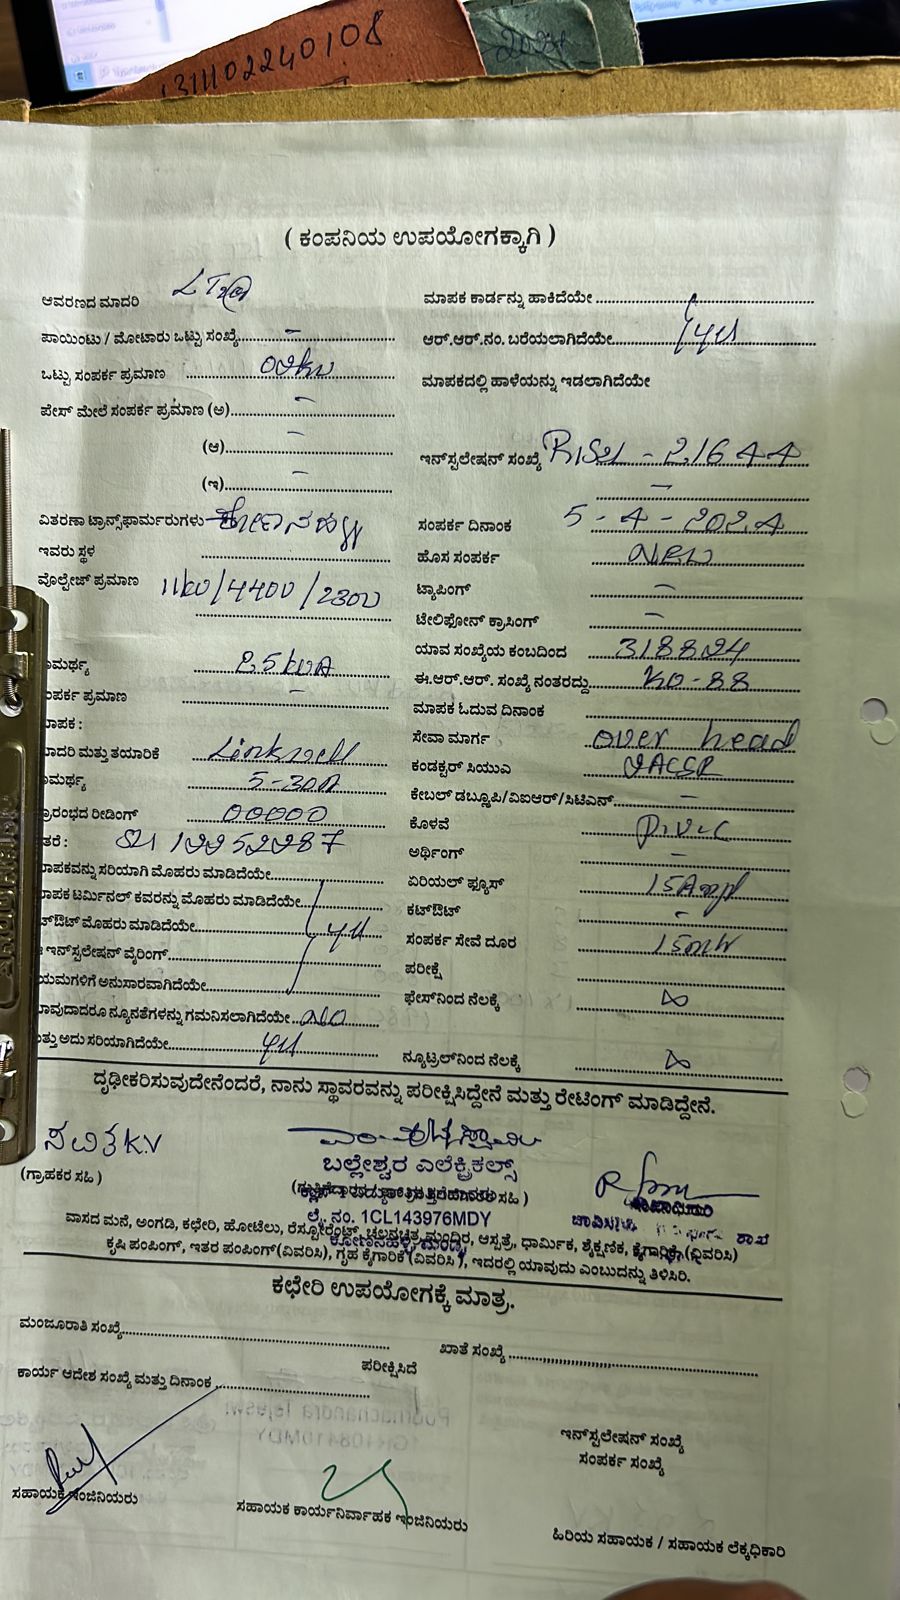 1311102240108
2024
( ಕಂಪನಿಯ ಉಪಯೋಗಕ್ಕಾಗಿ )
ಆವರಣದ ಮಾದರಿ
ಪಾಯಿಂಟು / ಮೋಟಾರು ಒಟ್ಟು ಸಂಖ್ಯೆ –
ಒಟ್ಟು ಸಂಪರ್ಕ ಪ್ರಮಾಣ
ಪೇಸ್ ಮೇಲೆ ಸಂಪರ್ಕ ಪ್ರಮಾಣ (ಅ) –
(ಆ) –
(ಇ) –
ವಿತರಣಾ ಟ್ರಾನ್ಸ್‌ಫಾರ್ಮರುಗಳು
ಇವರು ಸ್ಥಳ
ವೊಲ್ಟೇಜ್ ಪ್ರಮಾಣ 11kv/4400/230v
ಾಮರ್ಥ್ಯ 25kVA
ಂಪರ್ಕ ಪ್ರಮಾಣ –
ಾಪಕ :
ಾದರಿ ಮತ್ತು ತಯಾರಿಕೆ Linkwell
ಾಮರ್ಥ್ಯ 5-30A
ಪ್ರಾರಂಭದ ರೀಡಿಂಗ್ 00000
ತರೆ :
ಾಪಕವನ್ನು ಸರಿಯಾಗಿ ಮೊಹರು ಮಾಡಿದೆಯೇ
ಾಪಕ ಟರ್ಮಿನಲ್ ಕವರನ್ನು ಮೊಹರು ಮಾಡಿದೆಯೇ
ಟ್‌ಔಟ್ ಮೊಹರು ಮಾಡಿದೆಯೇ yes
ಇನ್‌ಸ್ಟಲೇಷನ್ ವೈರಿಂಗ್
ಯಮಗಳಿಗೆ ಅನುಸಾರವಾಗಿದೆಯೇ
ಾವುದಾದರೂ ನ್ಯೂನತೆಗಳನ್ನು ಗಮನಿಸಲಾಗಿದೆಯೇ NO
ತ್ತು ಅದು ಸರಿಯಾಗಿದೆಯೇ yes
ಮಾಪಕ ಕಾರ್ಡನ್ನು ಹಾಕಿದೆಯೇ
ಆರ್.ಆರ್.ನಂ. ಬರೆಯಲಾಗಿದೆಯೇ yes
ಮಾಪಕದಲ್ಲಿ ಹಾಳೆಯನ್ನು ಇಡಲಾಗಿದೆಯೇ
ಇನ್‌ಸ್ಟಲೇಷನ್ ಸಂಖ್ಯೆ 21644
–
ಸಂಪರ್ಕ ದಿನಾಂಕ 5-4-2024
ಹೊಸ ಸಂಪರ್ಕ NEW
ಟ್ಯಾಪಿಂಗ್ –
ಟೆಲಿಫೋನ್ ಕ್ರಾಸಿಂಗ್ –
ಯಾವ ಸಂಖ್ಯೆಯ ಕಂಬದಿಂದ 318824
ಈ.ಆರ್.ಆರ್. ಸಂಖ್ಯೆ ನಂತರದ್ದು KO-88
ಮಾಪಕ ಓದುವ ದಿನಾಂಕ
ಸೇವಾ ಮಾರ್ಗ over head
ಕಂಡಕ್ಟರ್ ಸಿಯುಎ
ಕೇಬಲ್ ಡಬ್ಲ್ಯೂಪಿ/ವಿಐಆರ್/ಸಿಟಿಎನ್ –
ಕೊಳವೆ P.V.C
ಅರ್ಥಿಂಗ್ –
ಏರಿಯಲ್ ಫ್ಯೂಸ್ 15Amp
ಕಟ್‌ಔಟ್ –
ಸಂಪರ್ಕ ಸೇವೆ ದೂರ 15mtr
ಪರೀಕ್ಷೆ
ಫೇಸ್‌ನಿಂದ ನೆಲಕ್ಕೆ ∞
ನ್ಯೂಟ್ರಲ್‌ನಿಂದ ನೆಲಕ್ಕೆ ∞
ದೃಢೀಕರಿಸುವುದೇನೆಂದರೆ, ನಾನು ಸ್ಥಾವರವನ್ನು ಪರೀಕ್ಷಿಸಿದ್ದೇನೆ ಮತ್ತು ರೇಟಿಂಗ್ ಮಾಡಿದ್ದೇನೆ.
ಸವಿತ K.V
(ಗ್ರಾಹಕರ ಸಹಿ )
ಬಲ್ಲೇಶ್ವರ ಎಲೆಕ್ಟ್ರಿಕಲ್ಸ್
ಲೈ. ನಂ. 1CL143976MDY
ಶಾಖೆ
ವಾಸದ ಮನೆ, ಅಂಗಡಿ, ಕಛೇರಿ, ಹೋಟೆಲು, ರೆಸ್ಟೋರೆಂಟ್, ಚಲನಚಿತ್ರ ಮಂದಿರ, ಆಸ್ಪತ್ರೆ, ಧಾರ್ಮಿಕ, ಶೈಕ್ಷಣಿಕ, ಕೈಗಾರಿಕೆ (ವಿವರಿಸಿ)
ಕೃಷಿ ಪಂಪಿಂಗ್, ಇತರ ಪಂಪಿಂಗ್(ವಿವರಿಸಿ), ಗೃಹ ಕೈಗಾರಿಕೆ (ವಿವರಿಸಿ ), ಇದರಲ್ಲಿ ಯಾವುದು ಎಂಬುದನ್ನು ತಿಳಿಸಿರಿ.
ಕಛೇರಿ ಉಪಯೋಗಕ್ಕೆ ಮಾತ್ರ.
ಮಂಜೂರಾತಿ ಸಂಖ್ಯೆ
ಖಾತೆ ಸಂಖ್ಯೆ
ಪರೀಕ್ಷಿಸಿದೆ
ಕಾರ್ಯ ಆದೇಶ ಸಂಖ್ಯೆ ಮತ್ತು ದಿನಾಂಕ
ಇನ್‌ಸ್ಟಲೇಷನ್ ಸಂಖ್ಯೆ
ಸಂಪರ್ಕ ಸಂಖ್ಯೆ
ಸಹಾಯಕ ಇಂಜಿನಿಯರು
ಸಹಾಯಕ ಕಾರ್ಯನಿರ್ವಾಹಕ ಇಂಜಿನಿಯರು
ಹಿರಿಯ ಸಹಾಯಕ / ಸಹಾಯಕ ಲೆಕ್ಕಧಿಕಾರಿ